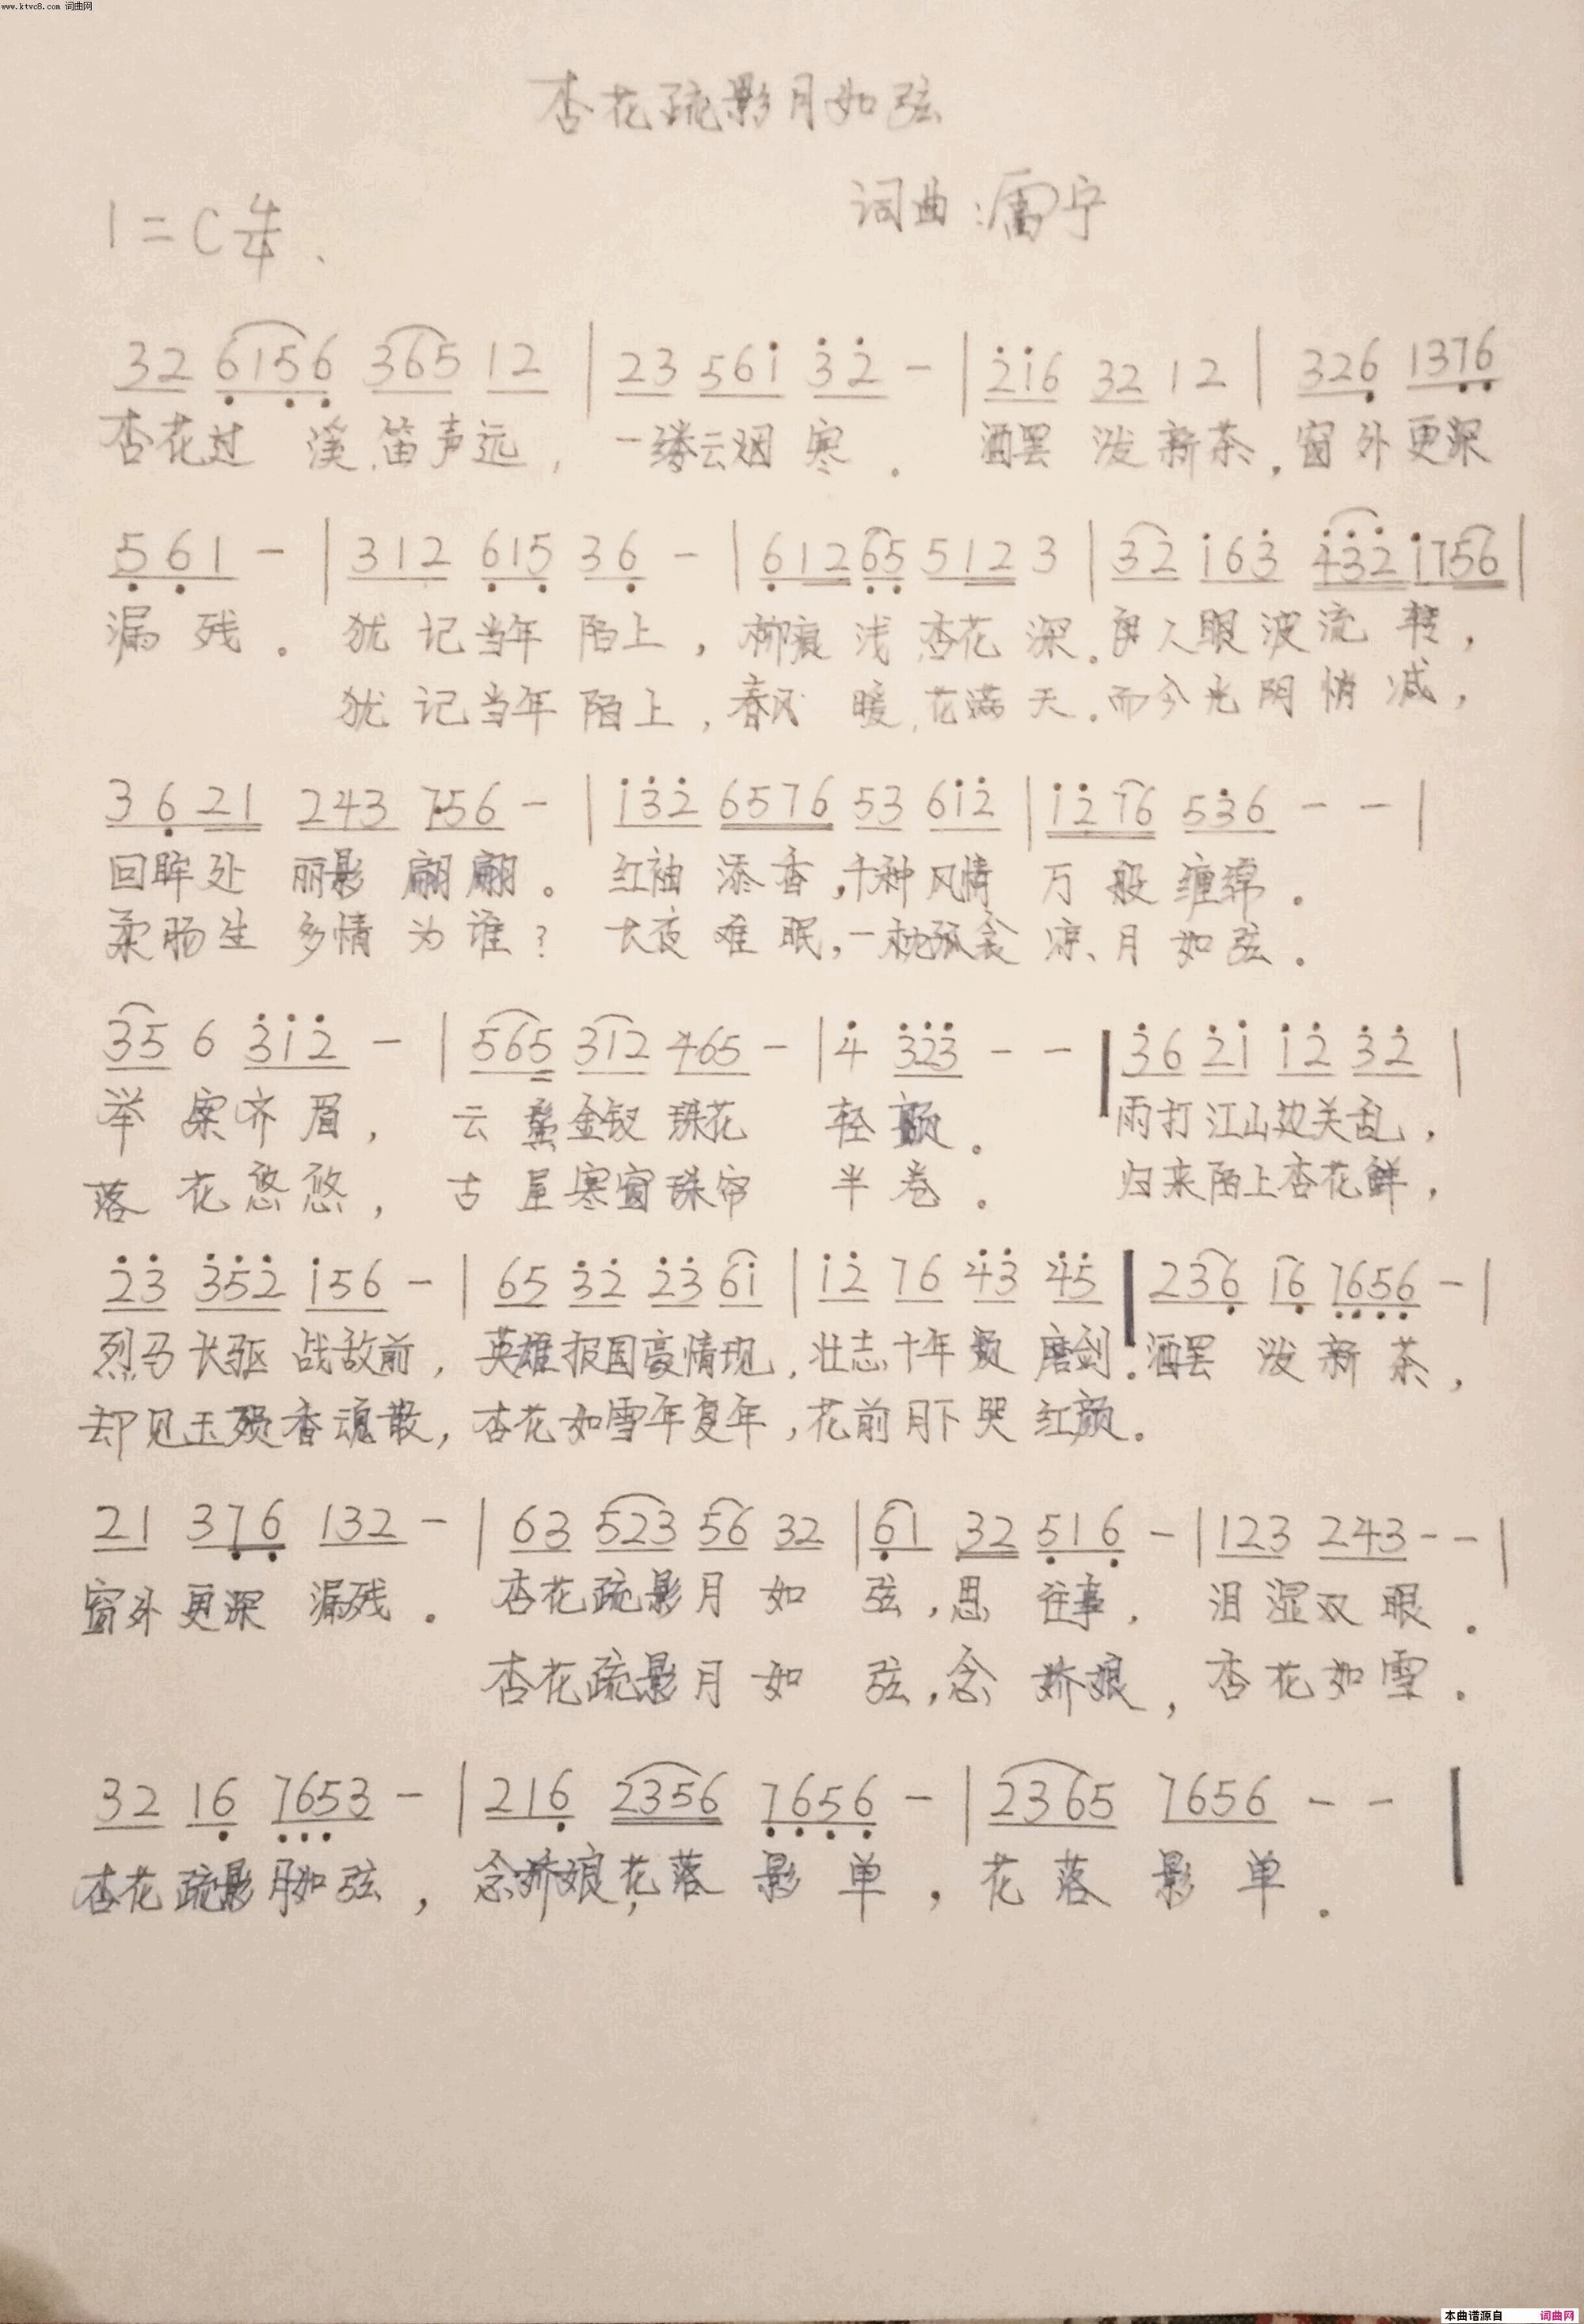 www.ktvc8.com 词曲网
杏花疏影月如弦
词曲:雷宁
1=C 4/4
32 6156 365 12 | 23 561 32 - | 216 32 12 | 326 1376
杏花过 溪,笛声远, 一缕云烟寒. 酒罢 泼新茶,窗外更深
561 - | 312 615 36 - | 61265 512 3 | 32 163 432 1756 |
漏残. 犹记当年陌上, 柳痕浅,杏花深.良人眼波流转,
犹记当年陌上,春风暖,花满天.而今光阴悄减,
3621 243 756 - | 132 6576 53 612 | 1276 536 - - |
回眸处 丽影翩翩. 红袖添香,千种风情 万般缠绵.
柔肠生 多情为谁? 长夜难眠,一枕孤衾 凉、月如弦.
35 6 312 - | 565 312 465 - | 4 323 - - | 36 21 12 32 |
举案齐眉, 云鬓金钗 珠花 轻颤. 雨打江山边关乱,
落花悠悠, 古屋寒窗珠帘 半卷. 归来陌上杏花鲜,
23 352 156 - | 65 32 23 61 | 12 76 43 45 | 236 16 7656 - |
烈马长驱战敌前, 英雄报国豪情现,壮志十年 磨剑.酒罢 泼新茶,
却见玉殒香魂散,杏花如雪年复年,花前月下哭红颜.
21 376 132 - | 63 523 56 32 | 61 32 516 - | 123 243 - - |
窗外更深 漏残. 杏花疏影月如 弦,思往事, 泪湿双眼.
杏花疏影月如 弦,念娇娘,杏花如雪.
32 16 7653 - | 216 2356 7656 - | 2365 7656 - - |
杏花疏影月如弦, 念娇娘,花落影单, 花落影单.
本曲谱源自 词曲网